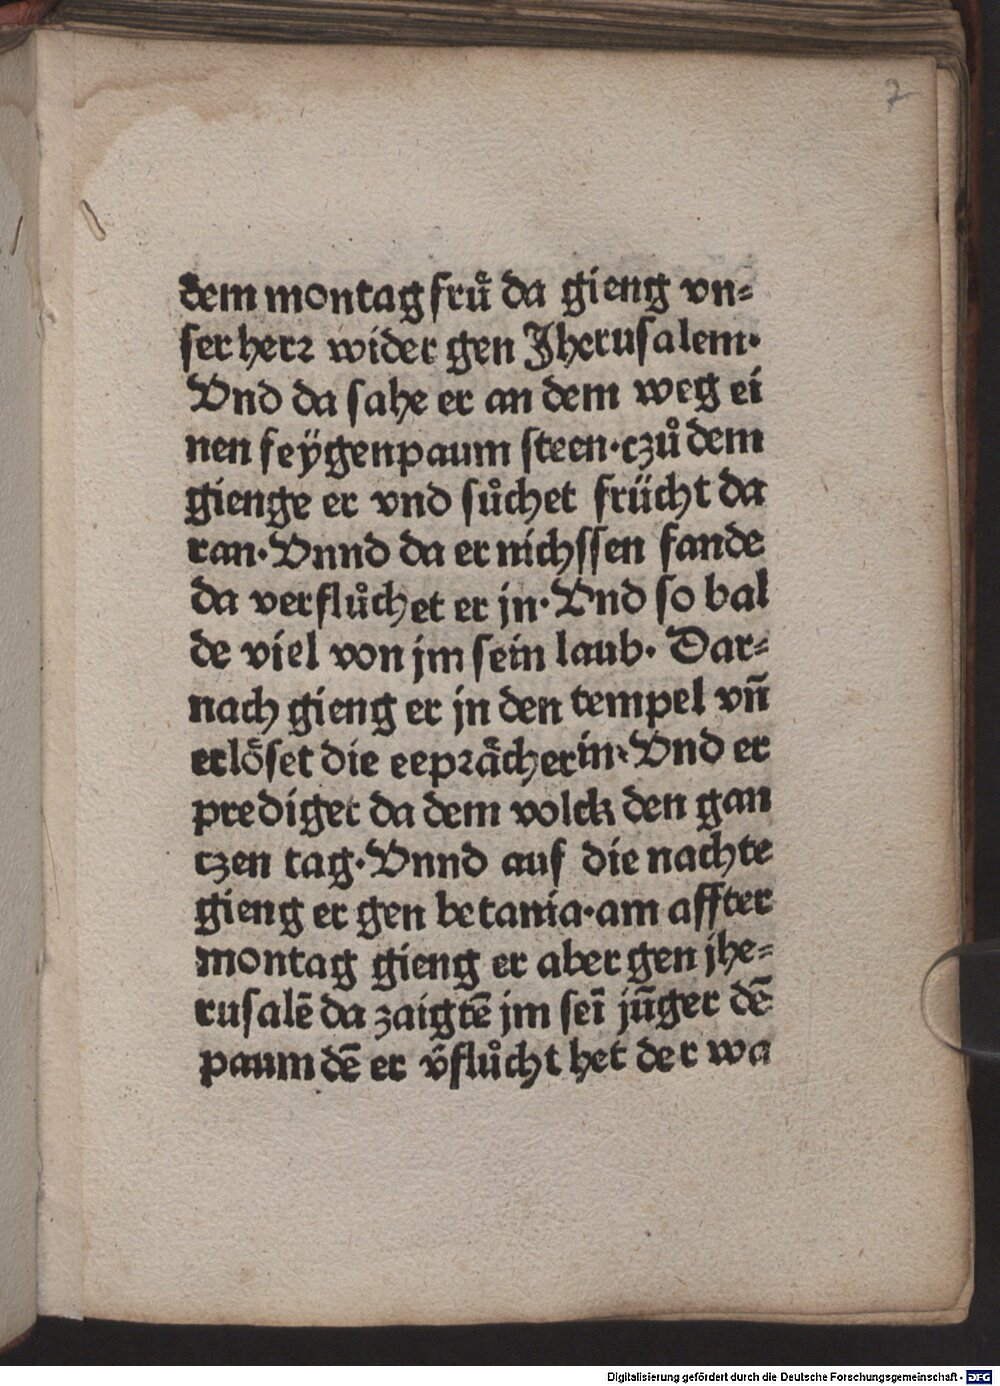 7
dem montag frů da gieng vn⸗
ser herꝛ wider gen Jherusalem·
Vnd da sahe er an dem weg ei
nen feÿgenpaum steen·czů dem
gienge er vnd sůchet frücht da
ran·Vnnd da er nichssen fande
da verflůchet er jn·Vnd so bal
de viel von jm sein laub· Dar⸗
nach gieng er jn den tempel vn̄
erlöset die eepꝛächerin·Vnd er
prediget da dem volck den gan
czen tag·Vnnd auf die nachte
gieng er gen betania·am affter
montag gieng er aber gen jhe⸗
rusalē da zaigtē jm sei͂ jūger dē
paum dē er v̄flůcht het der wa
Digitalisierung gefördert durch die Deutsche Forschungsgemeinschaft - DFG